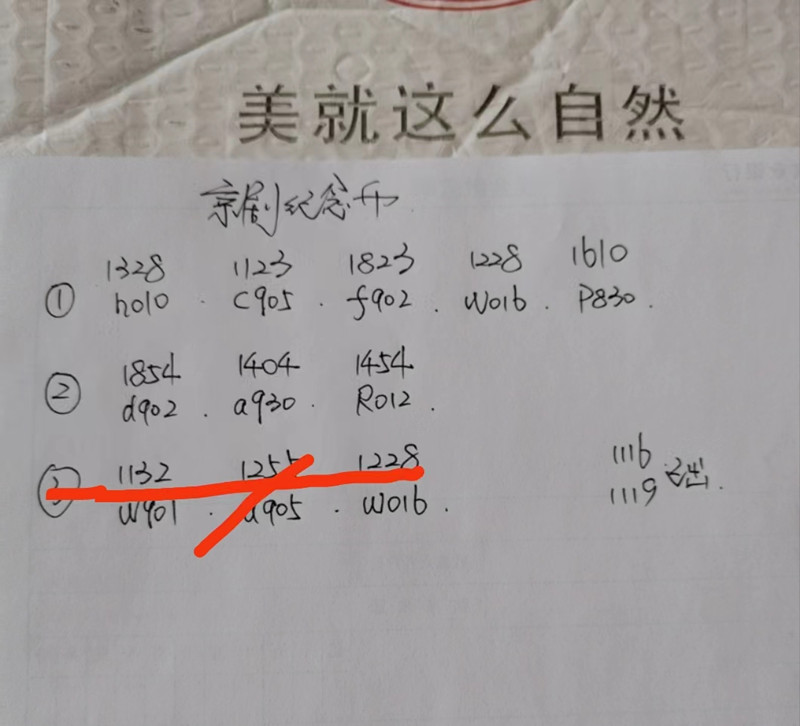 美就这么自然
京剧纪念币
1328 1123 1823 1228 1610
① h010 . C905 . f902 . W016 . P830 .
1854 1404 1454
② d902 . a930 . R012 .
1132 1255 1228
③ W901 . a905 . W016 .
1116
1119 已出.